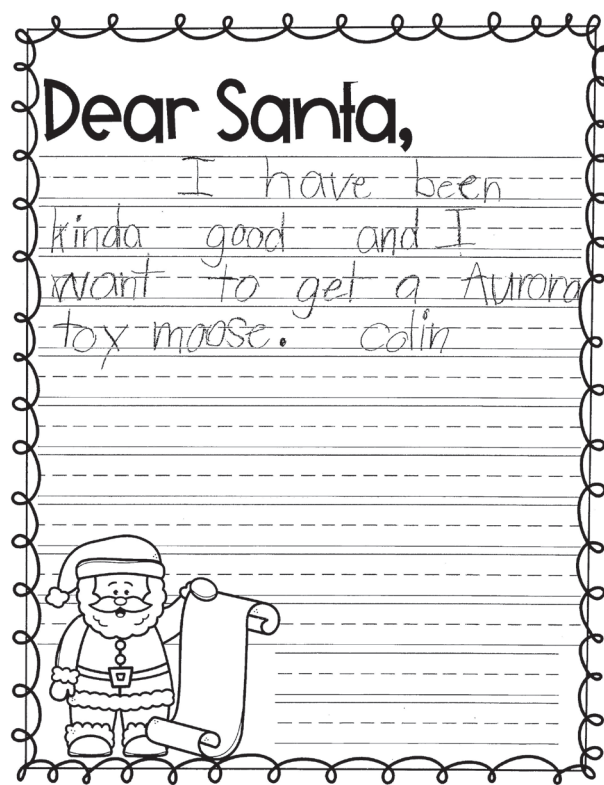 Dear Santa,
I have been
kinda good and I
want to get a Aurora
toy moose. Colin